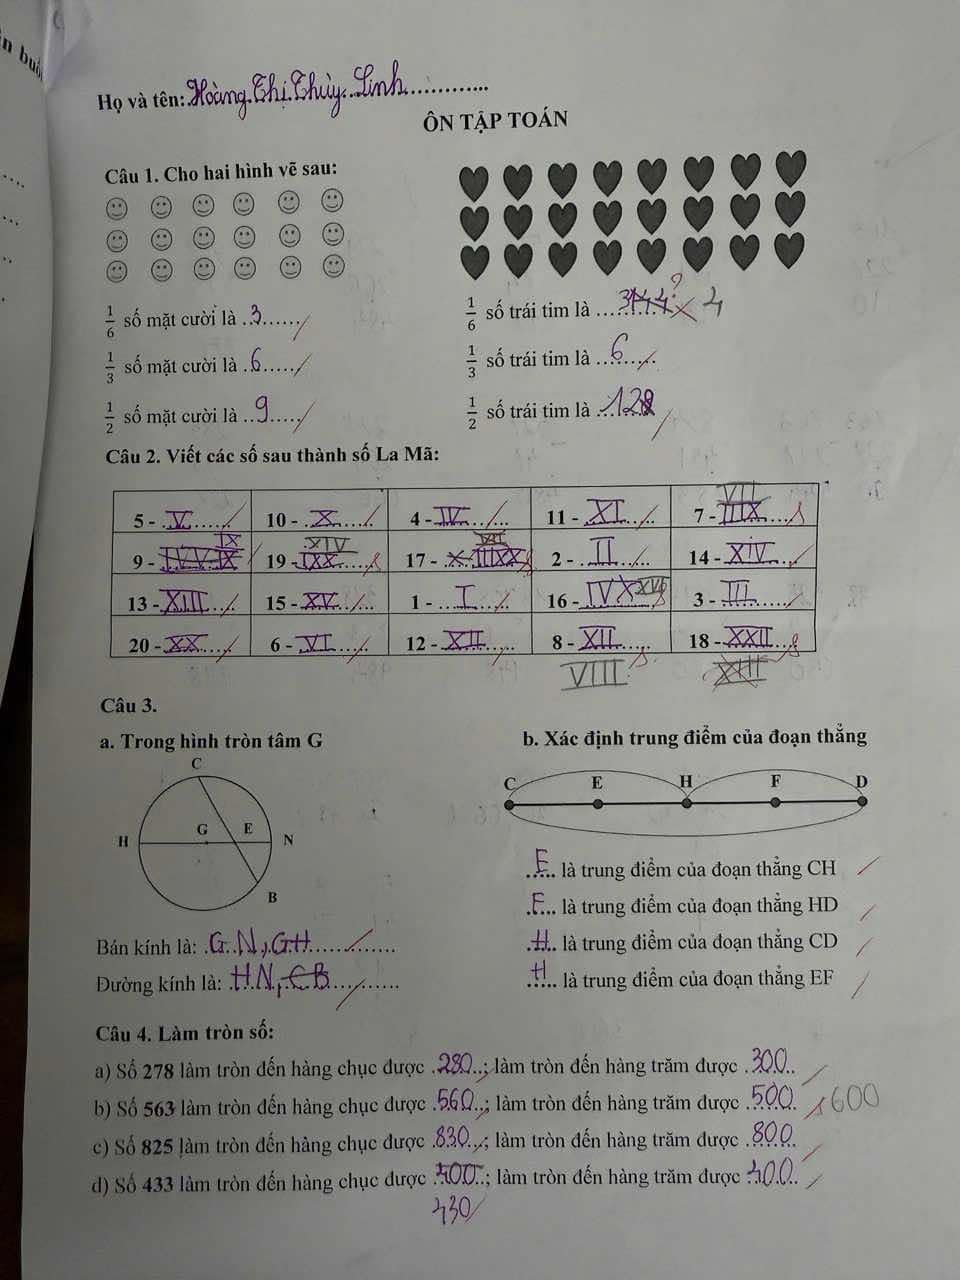 ần buổi
Họ và tên: Hoàng Thị Thùy Linh
ÔN TẬP TOÁN
Câu 1. Cho hai hình vẽ sau:
1/6 số mặt cười là 3
1/6 số trái tim là ? 4
1/3 số mặt cười là 6
1/3 số trái tim là 6
1/2 số mặt cười là 9
1/2 số trái tim là 12
Câu 2. Viết các số sau thành số La Mã:
5 - V 10 - X 4 - IV 11 - XI 7 - IIIX VII
9 - IX 19 - IXX XIV 17 - IIIXX 2 - II 14 - XIV
13 - XIII 15 - XV 1 - I 16 - IVX XVI 3 - III
20 - XX 6 - VI 12 - XII 8 - XII 18 - XXII
VIII XIII
Câu 3.
a. Trong hình tròn tâm G
b. Xác định trung điểm của đoạn thẳng
C
C E H F D
H G E N
B
E là trung điểm của đoạn thẳng CH
F là trung điểm của đoạn thẳng HD
Bán kính là: GN, GH
H là trung điểm của đoạn thẳng CD
Đường kính là: HN, CB
H là trung điểm của đoạn thẳng EF
Câu 4. Làm tròn số:
a) Số 278 làm tròn đến hàng chục được 280; làm tròn đến hàng trăm được 300
b) Số 563 làm tròn đến hàng chục được 560; làm tròn đến hàng trăm được 500 600
c) Số 825 làm tròn đến hàng chục được 830; làm tròn đến hàng trăm được 800
d) Số 433 làm tròn đến hàng chục được 400; làm tròn đến hàng trăm được 400
430